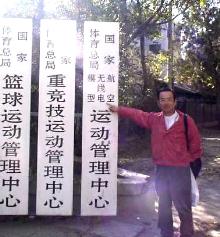 国家
体育总局
篮球运动管理中心
国家
体育总局
重竞技运动管理中心
国家
体育总局
航空
无线电
模型
运动管理中心